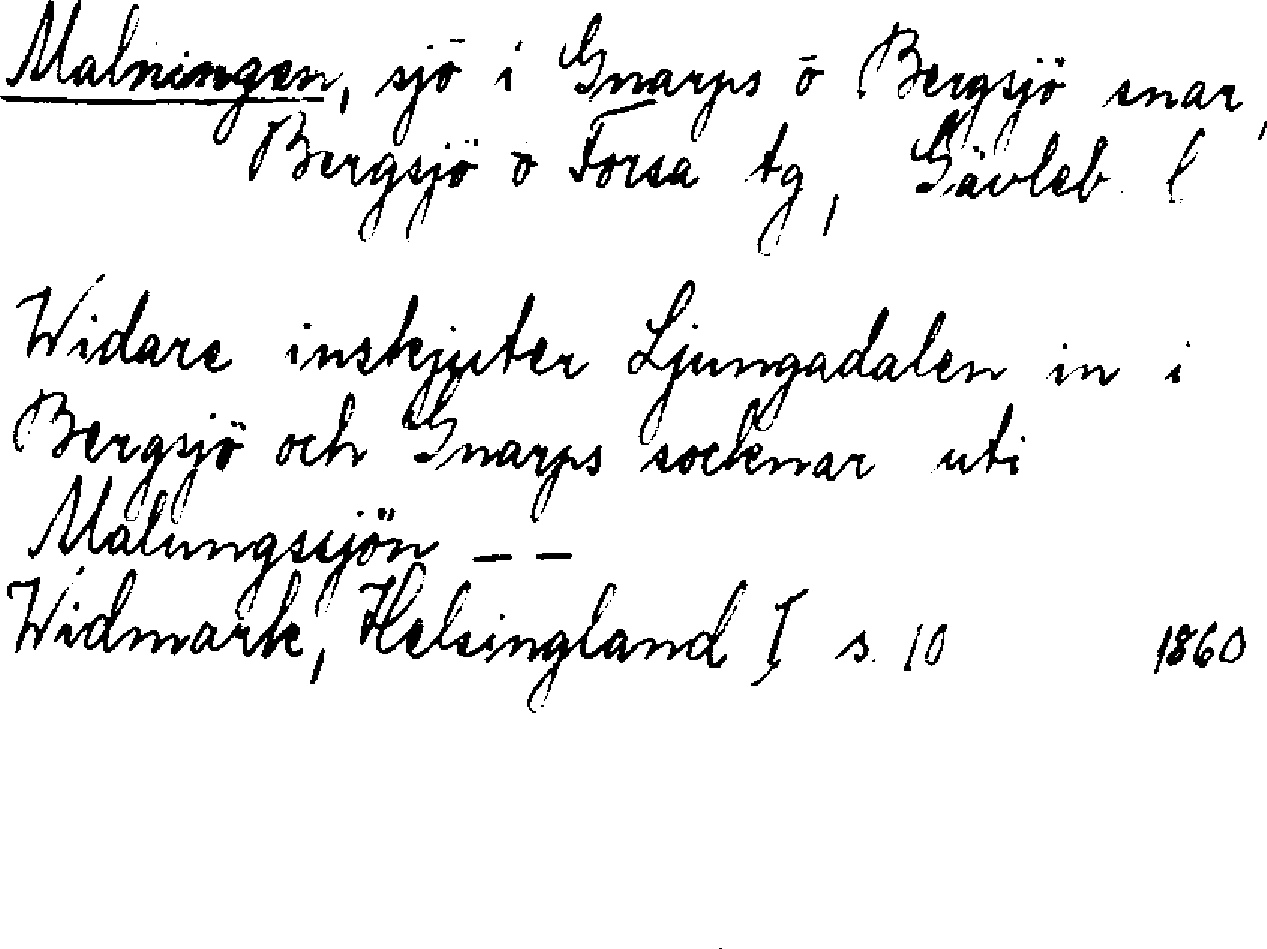 Malningen, sjö i Gnarps o Bergsjö snar,
Bergsjö o Forsa tg, Gävleb l
Widare inskjuter Ljungadalen in i
Bergsjö och Gnarps socknar uti
Malungssjön – –
Widmark, Helsingland I s. 10 1860